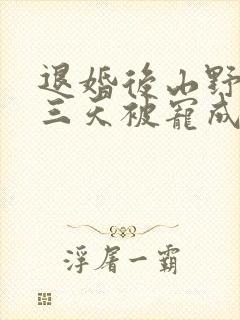 退婚後山野
三天被寵成
浮屠一霸